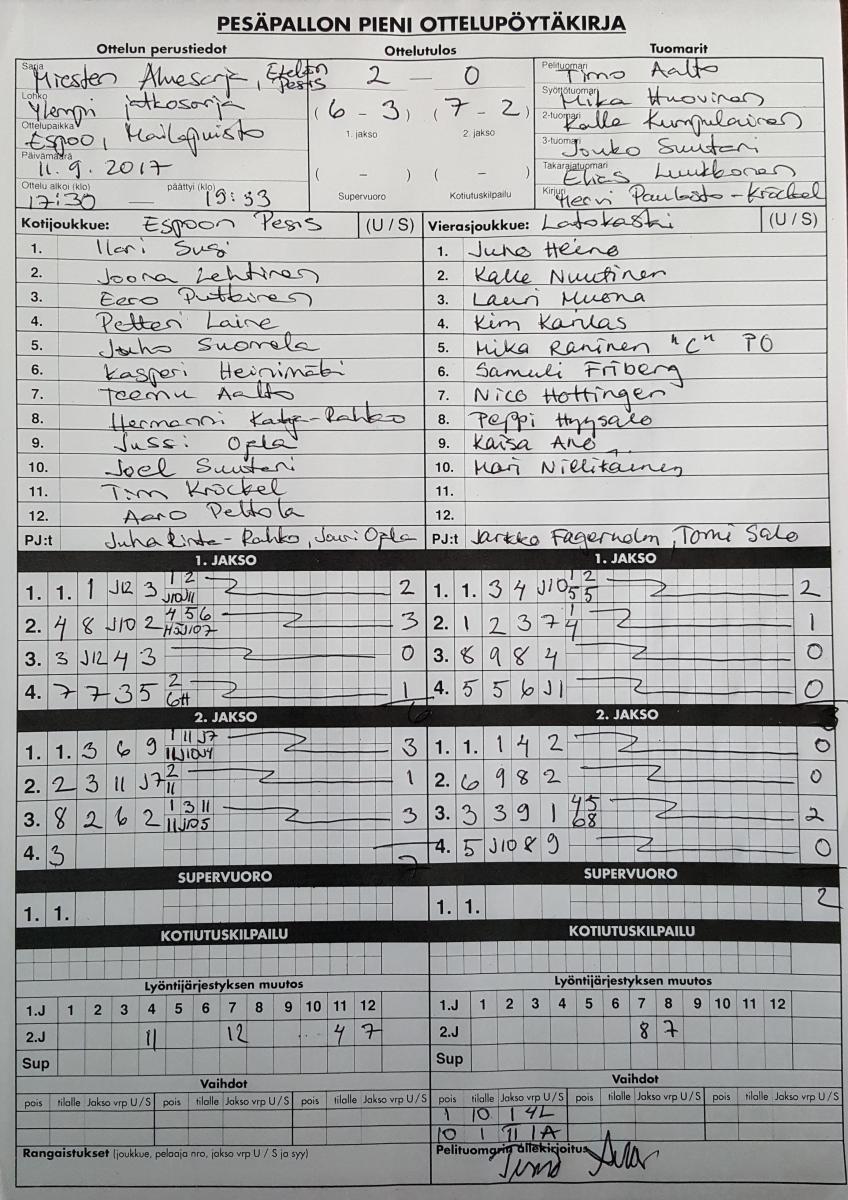 PESÄPALLON PIENI OTTELUPÖYTÄKIRJA
Ottelun perustiedot Ottelutulos Tuomarit
Sarja Miesten Aluesarja, Etelän Pesis 2 — 0 Pelituomari Timo Aalto
Lohko Ylempi jatkosarja (6 - 3) (7 - 2) Syöttötuomari Mika Huovinen
Ottelupaikka Espoo, Mailapuisto 1. jakso 2. jakso 2-tuomari Kalle Kumpulainen
3-tuomari Jouko Suutari
Päivämäärä 11.9.2017 ( - ) ( - ) Takarajatuomari Elias Luukkonen
Ottelu alkoi (klo) 17:30 — päättyi (klo) 19:33 Supervuoro Kotiutuskilpailu Kirjuri Hervi Paulasto-Kröckel
Kotijoukkue: Espoon Pesis (U / S) Vierasjoukkue: Latokaski (U / S)
1. Ilari Susi 1. Juho Heino
2. Joona Lehtinen 2. Kalle Nuutinen
3. Eero Putkinen 3. Lauri Muona
4. Petteri Laine 4. Kim Karilas
5. Juho Suomela 5. Mika Raninen "C" PO
6. Kasperi Heinimäki 6. Samuli Friberg
7. Teemu Aalto 7. Nico Hottinger
8. Hermanni -Rahko 8. Peppi Hyysalo
9. Jussi Opla 9. Kaisa Aho
10. Joel Suutari 10. Mari
11. Tim Kröckel 11.
12. Aaro Peltola 12.
PJ:t Juha Rinta-Rahko, Jouni Opla PJ:t Jarkko Fagerholm, Tomi Salo
1. JAKSO 1. JAKSO
1. 1. 1 J12 3 1 2 J10 J11 2 1. 1. 3 4 J10 1 2 5 5 2
2. 4 8 J10 2 4 5 6 J10 7 3 2. 1 2 3 7 1 4 1
3. 3 J12 4 3 0 3. 8 9 8 4 0
4. 7 7 3 5 2 6H 1 4. 5 5 6 J1 0
6 3
2. JAKSO 2. JAKSO
1. 1. 3 6 9 1 11 J7 11 J10 J4 3 1. 1. 1 4 2 0
2. 2 3 11 J7 2 11 1 2. 6 9 8 2 0
3. 8 2 6 2 1 3 11 11 J10 5 3 3. 3 3 9 1 4 5 6 8 2
4. 3 7 4. 5 J10 8 9 0
SUPERVUORO SUPERVUORO
1. 1. 1. 1. 2
KOTIUTUSKILPAILU KOTIUTUSKILPAILU
Lyöntijärjestyksen muutos Lyöntijärjestyksen muutos
1.J 1 2 3 4 5 6 7 8 9 10 11 12 1.J 1 2 3 4 5 6 7 8 9 10 11 12
2.J 11 12 4 7 2.J 8 7
Sup Sup
Vaihdot Vaihdot
pois tilalle Jakso vrp U / S pois tilalle Jakso vrp U / S pois tilalle Jakso vrp U / S pois tilalle Jakso vrp U / S pois tilalle Jakso vrp U / S pois tilalle Jakso vrp U / S
1 10 I 4L
10 1 II 1A
Rangaistukset (joukkue, pelaaja nro, jakso vrp U / S ja syy) Pelituomarin allekirjoitus